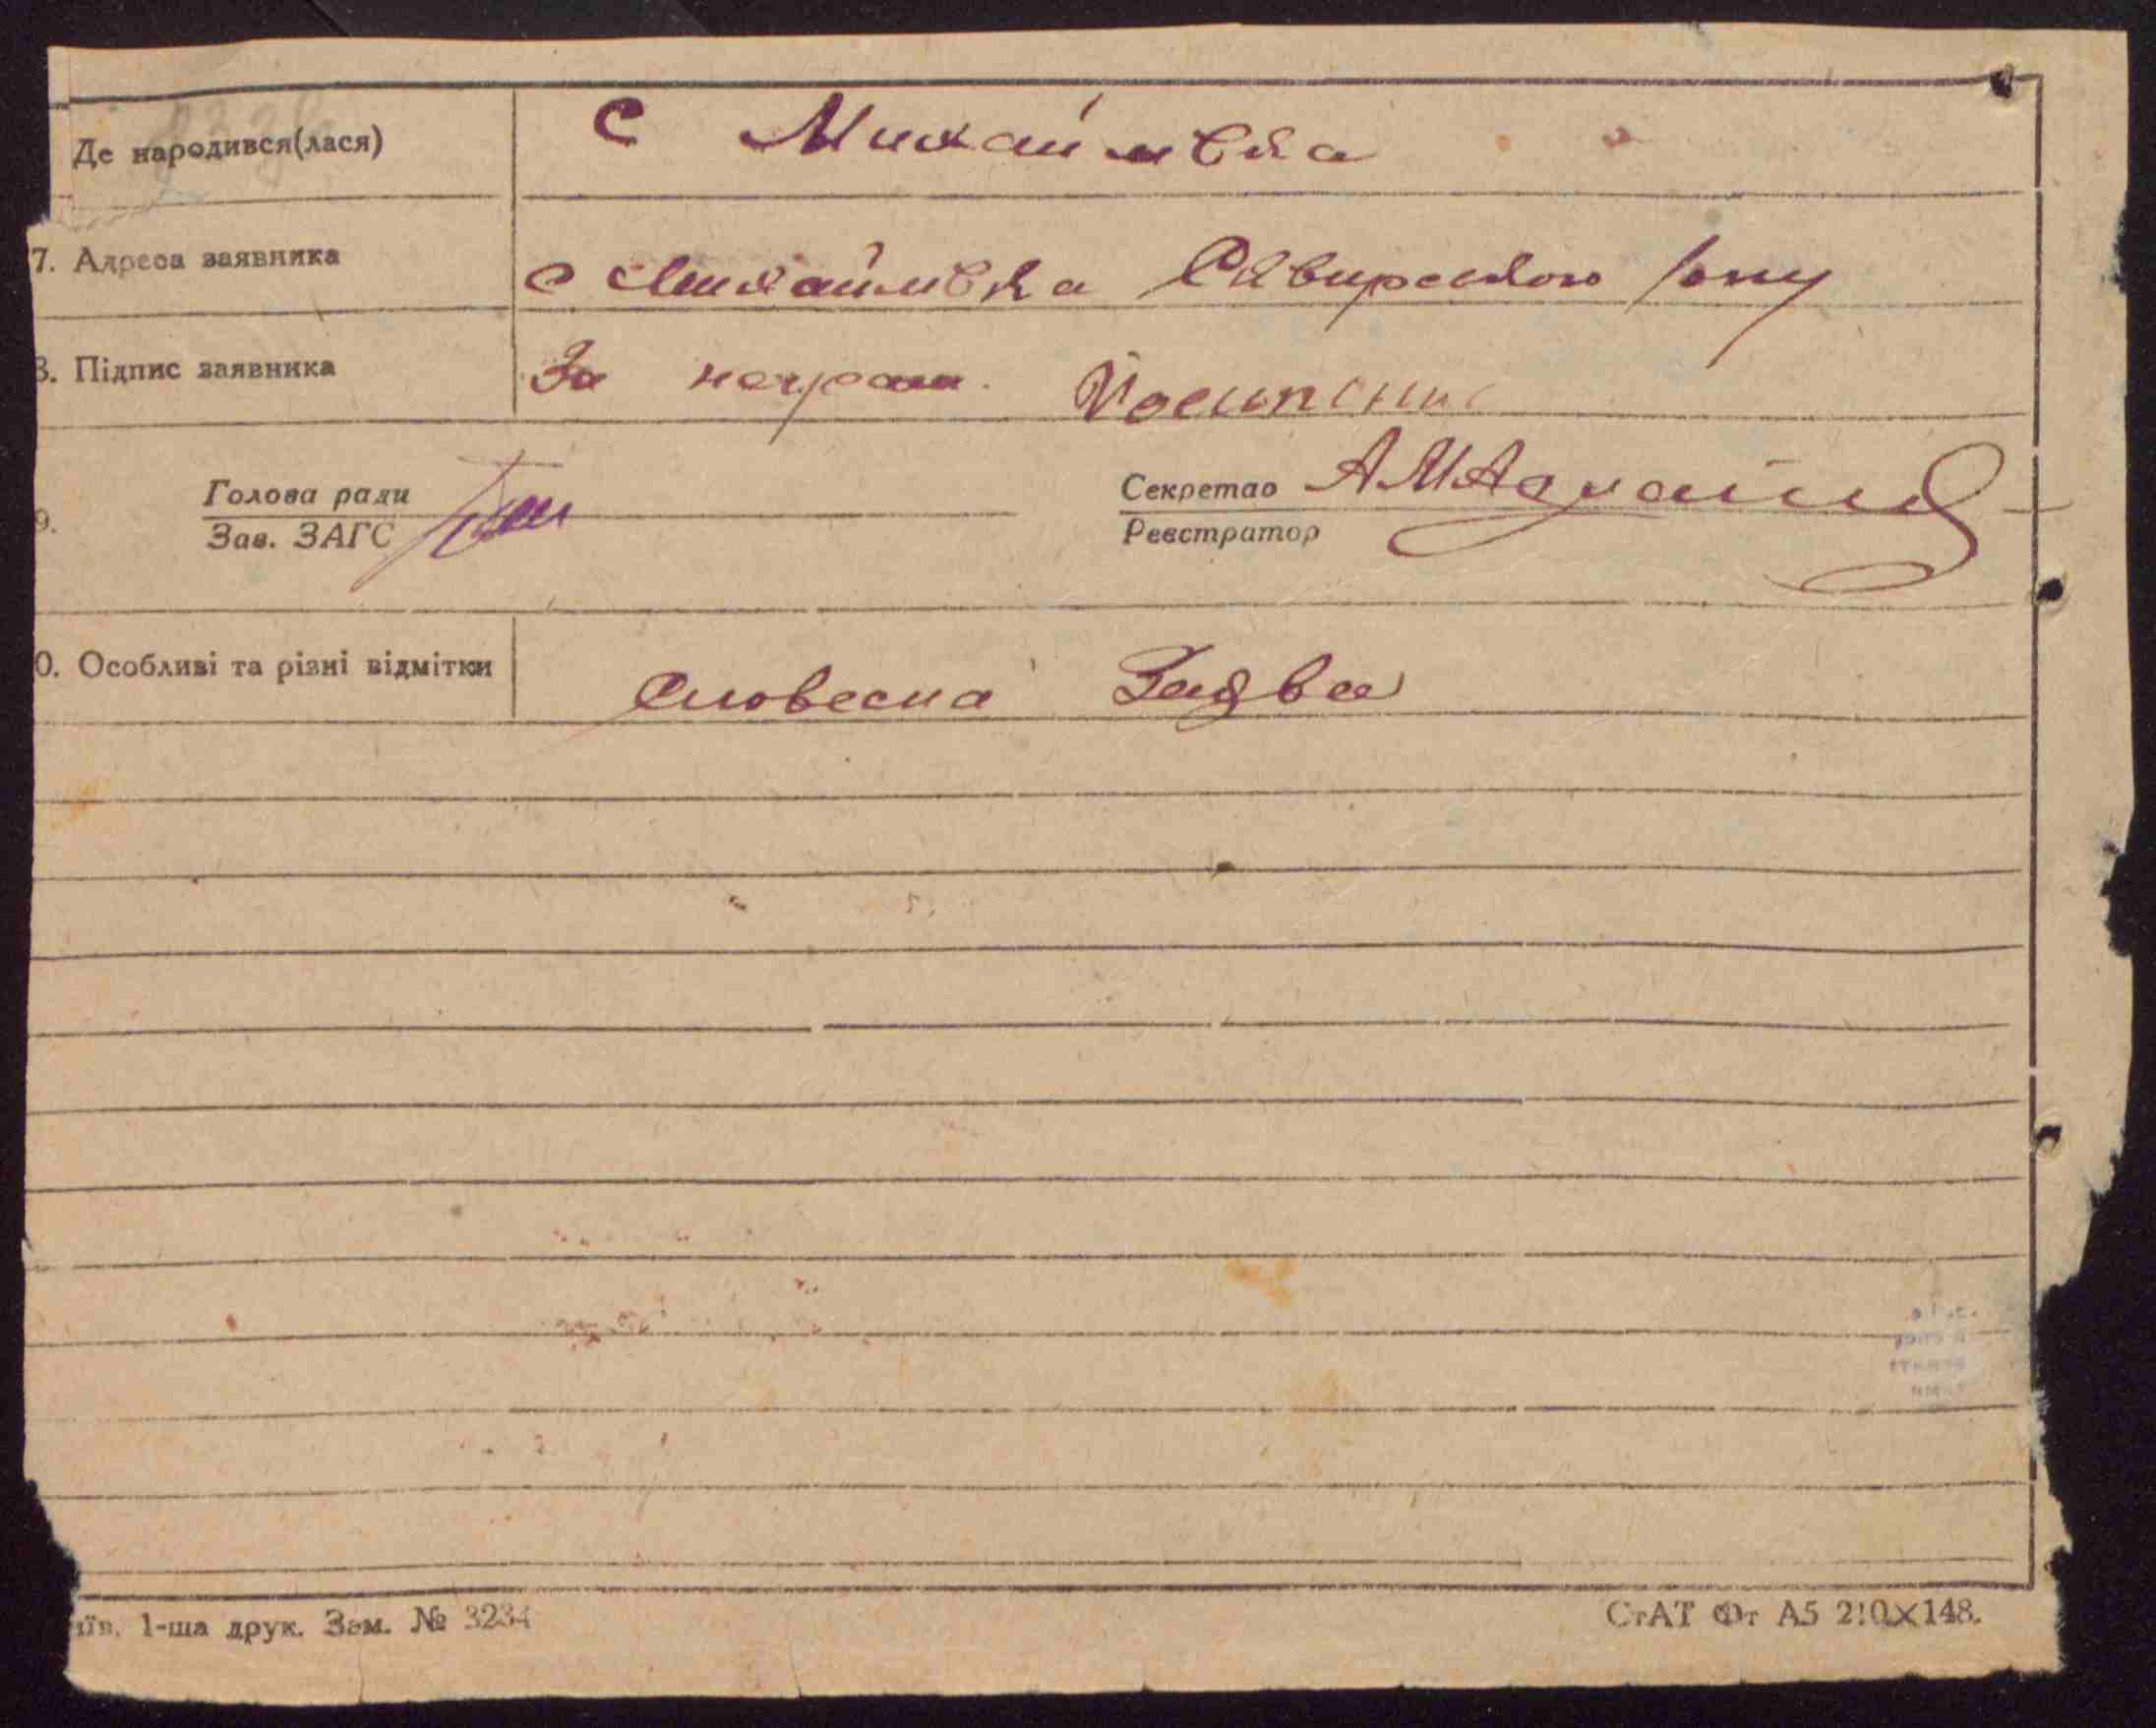 Де народився(лася) с Михайлівка
7. Адреса заявника с Михайлівка Сквирського р-ну
8. Підпис заявника За неграм.
9. Голова ради Секретар
Зав. ЗАГС Реєстратор
0. Особливі та різні відмітки Словесна Заява
иїв. 1-ша друк. Зам. № 3234 СтАТ Фт А5 210×148.